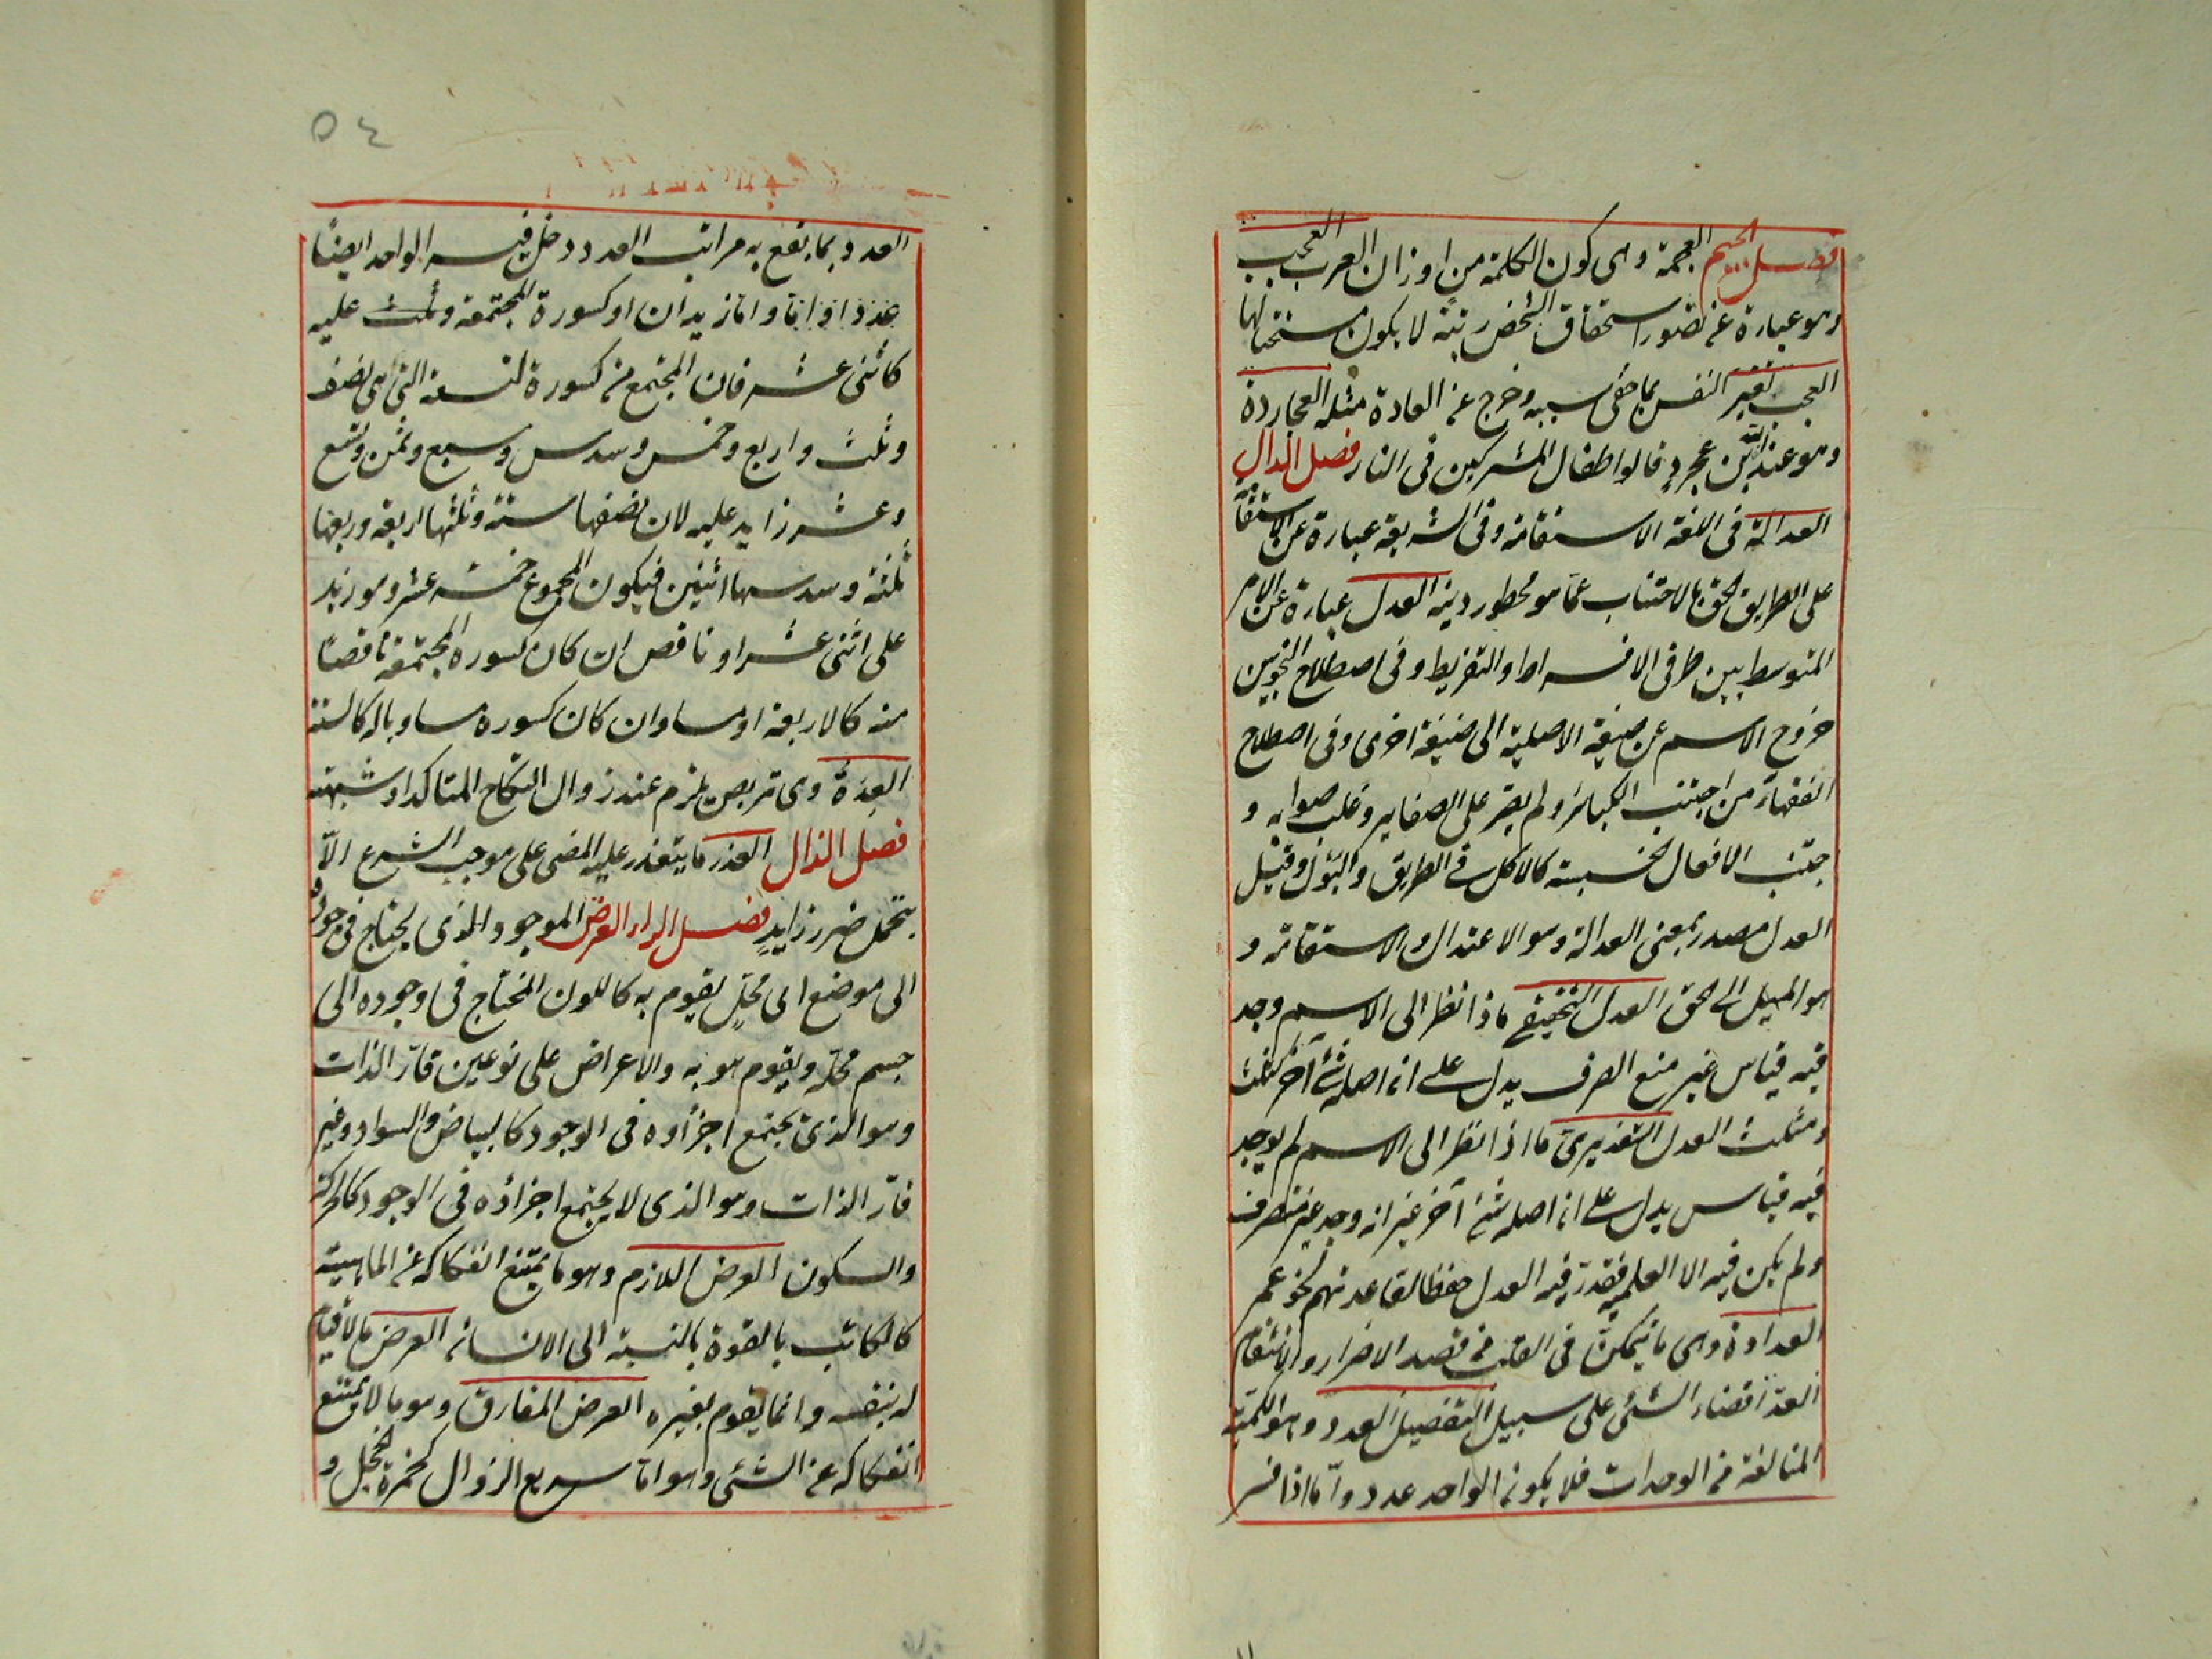 فصل الجيم العجمة وهى كون الكلمة من اوزان العرب العجب
وهو عبارة عن تصور استحقاق الشخص رتبة لا يكون مستحقا لها
العجب تغير النفس بما خفى سببه وخرج عن العادة مثله العجاردة
وهو عبد الله بن عجرد قالوا اطفال المشركين فى النار فصل الدال
العدالة فى اللغة الاستقامة وفى الشريعة عبارة عن الاستقامة
على الطريق الحق بالاجتناب عما هو محظور دينه العدل عبارة عن الامر
المتوسط بين طرفى الافراط والتفريط وفى اصطلاح النحويين
خروج الاسم عن صيغة الاصلية الى صيغة اخرى وفى اصطلاح
الفقهاء من اجتنب الكبائر ولم يصر على الصغاير وغلب صوابه و
جتنب الافعال الخسيسة كالاكل فى الطريق والبول وقيل
العدل مصدر بمعنى العدالة وهو الاعتدال والاستقامة و
هو الميل الى الحق العدل التحقيقى ما اذا نظر الى الاسم وجد
فيه قياس غير منع الصرف يدل على ان اصله شئ آخر كثلث
ومثلث العدل التقديرى ما اذا نظر الى الاسم لم يوجد
فيه قياس يدل على ان اصله شئ آخر غير انه وجد غير منصرف
ولم يكن فيه الا العلمية فقدر فيه العدل حفظا لقاعدتهم نحو عمر
العداوة وهى ما يتمكن فى القلب من قصد الاضرار والانتقام
العد اقضاء الشئ على سبيل التفصيل العدد وهو الكمية
المتالفة من الوحدات فلا يكون الواحد عدد واما اذا فسر
٥٤
العدد بما يقع به مراتب العدد دخل فيه الواحد ايضا
عدد او اما واما زيد ان او كسورة المجتمعة وثلث عليه
كاثنى عشر فان المجتمع من كسورة لتسعة التى هى نصف
وثلث واربع وخمس وسدس وسبع وثمن وتسع
وعشر زايد عليه لان نصفها ستة وثلثها اربعة وربعها
ثلثة وسدسها اثنين فيكون المجموع خمسة عشر وهو زيد
على اثنى عشر او ناقص ان كان كسوره المجتمعة ناقصا
منه كالاربعة او مساو ان كان كسوره مساويا له كالستة
العدة وهى تربص يلزم عند زوال النكاح المتاكد او شبهته
فصل الذال العذر ما يتعذر عليه المضى على موجب الشرع الا
بتحمل ضرر زايد فصل الراء العرض الموجود الذى يحتاج فى وجوده
الى موضع اى محل يقوم به كاللون المحتاج فى وجوده الى
جسم محله ويقوم هو به والاعراض على نوعين قار الذات
وهو الذى يجتمع اجزاؤه فى الوجود كالبياض والسواد وغير
قار الذات وهو الذى لا يجتمع اجزاؤه فى الوجود كالحركة
والسكون العرض اللازم وهو ما يمتنع انفكاكه عن الماهية
كالكاتب بالقوة بالنسبة الى الانسان العرض ما لا قيام
له بنفسه وانما يقوم بغيره العرض المفارق وهو ما لا يمتنع
انفكاكه عن الشئ وهو اما سريع الزوال كحمرة الخجل و